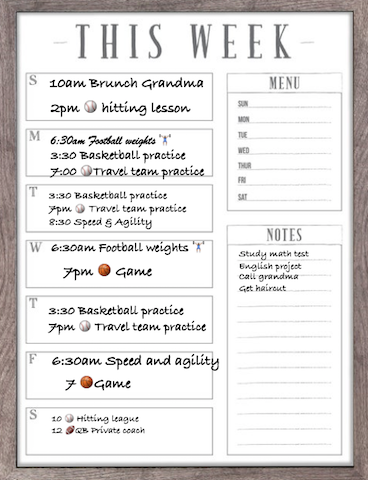 THIS WEEK
S
10am Brunch Grandma
2pm ⚾ hitting lesson
M
6:30am Football weights 🏋
3:30 Basketball practice
7:00 ⚾Travel team practice
T
3:30 Basketball practice
7pm ⚾ Travel team practice
8:30 Speed & Agility
W
6:30am Football weights 🏋
7pm 🏀 Game
T
3:30 Basketball practice
7pm ⚾ Travel team practice
F
6:30am Speed and agility
7 🏀Game
S
10 ⚾ Hitting league
12 🏈QB Private coach
MENU
SUN
MON
TUE
WED
THUR
FRI
SAT
NOTES
Study math test
English project
Call grandma
Get haircut